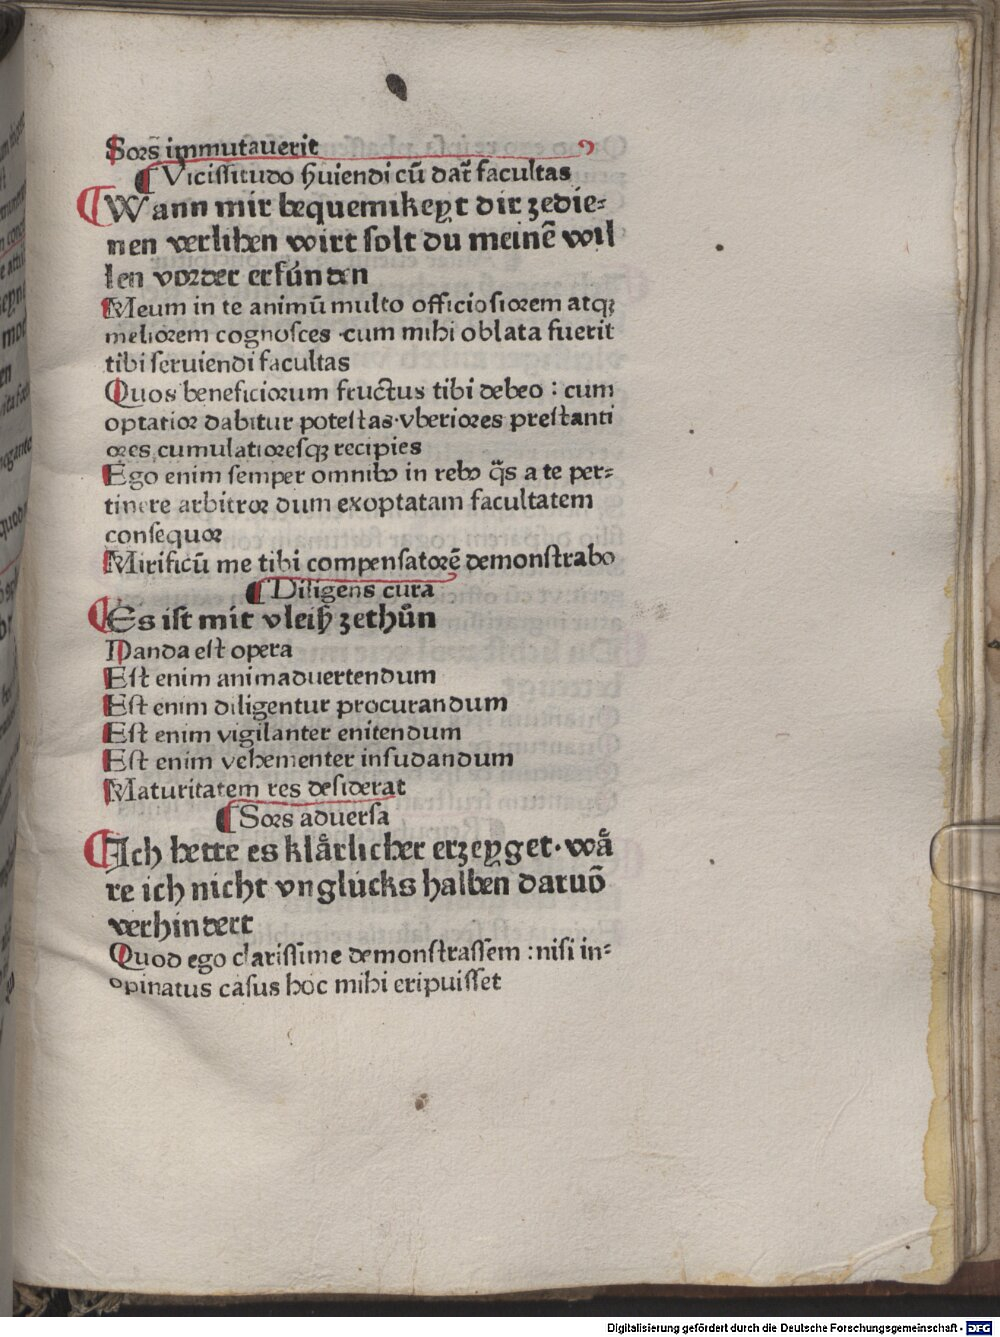 Sors̄ immutauerit
¶ Vicissitudo ẜuiendi cū dat̄ facultas
¶ Wann mir bequemikeyt dir zedie⸗
nen verlihen wirt solt du meinē wil
len vorder erfúnden
Meum in te animū multo officiosiorem atqꝫ
meliorem cognosces ·cum mihi oblata fuerit
tibi seruiendi facultas
Quos beneficiorum fructus tibi debeo : cum
optatior dabitur potestas·vberiores prestanti
ores cumulatioresqꝫ recipies
Ego enim semper omnibꝰ in rebꝰ q̄s a te per⸗
tinere arbitror dum exoptatam facultatem
consequor
Mirificū me tibi compensatorē demonstrabo
¶ Diligens cura
¶ Es ist mit vleiß zethůn
Nanda est opera
Est enim animaduertendum
Est enim diligentur procurandum
Est enim vigilanter enitendum
Est enim vehementer insudandum
Maturitatem res desiderat
¶ Sors aduersa
¶ Ich hette es klårlicher erzeyget·wå
re ich nicht vnglucks halben daruō
verhindert
Quod ego clarissime demonstrassem : nisi in⸗
opinatus casus hoc mihi eripuisset
Digitalisierung gefördert durch die Deutsche Forschungsgemeinschaft - DFG